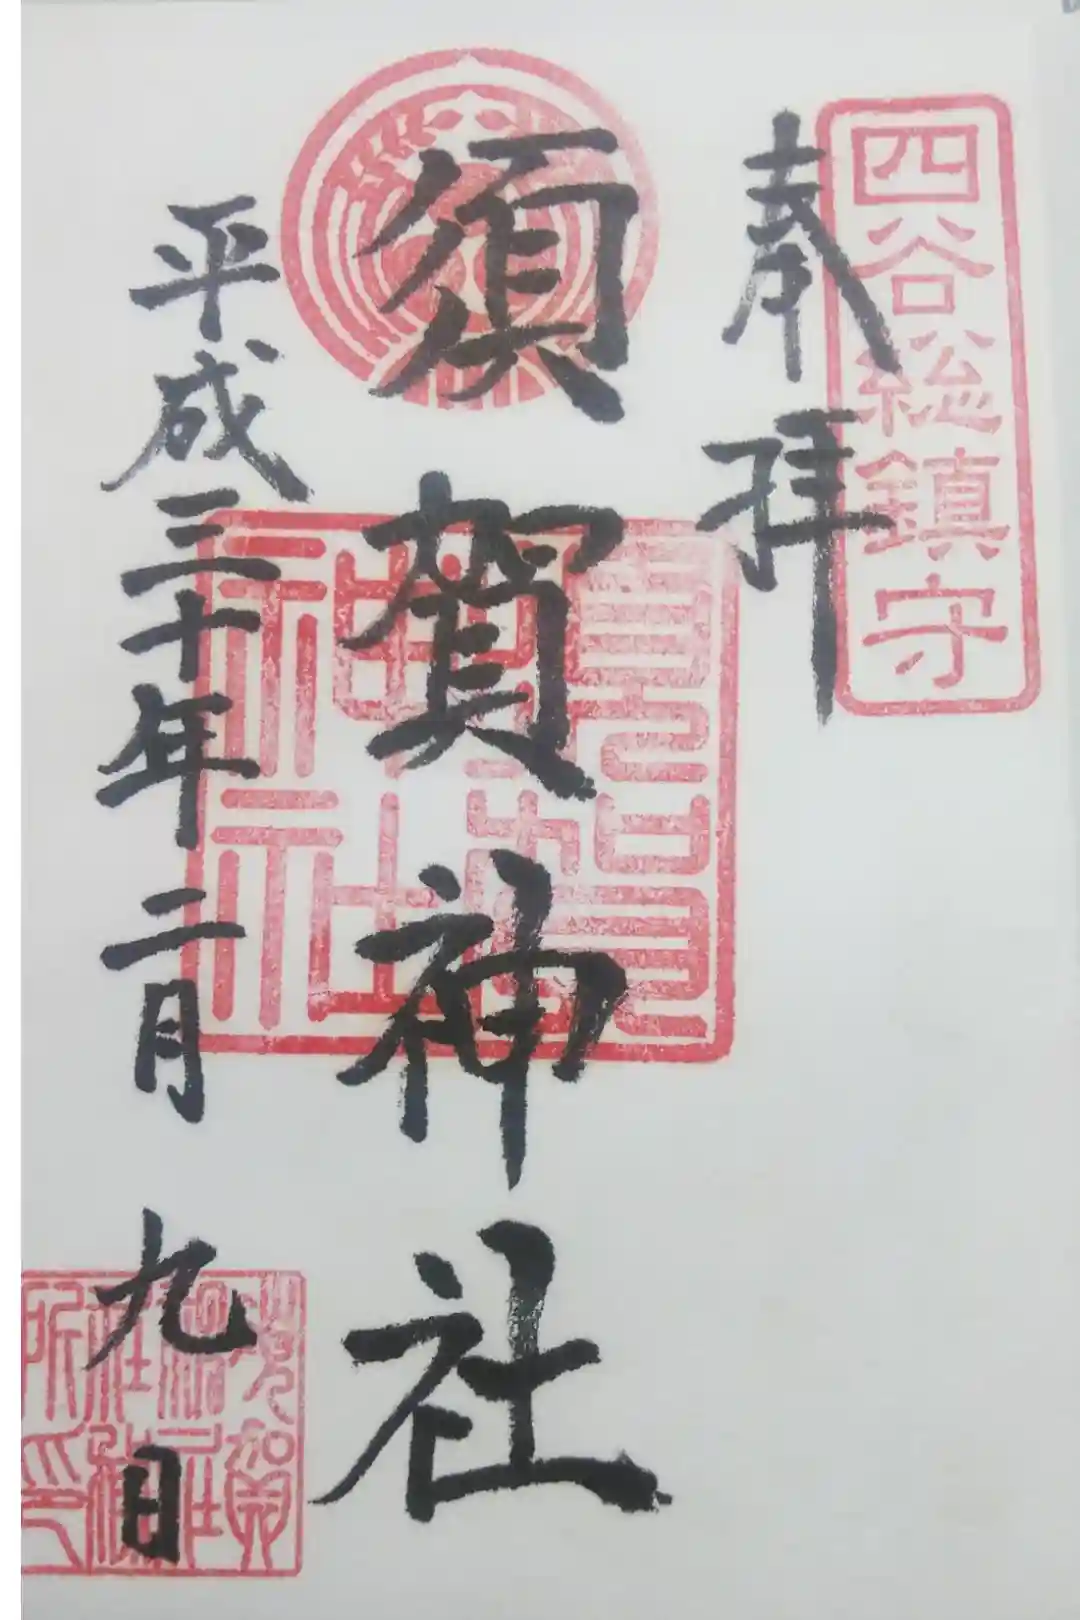 四谷総鎮守
奉拝
須賀神社
須賀神社
平成三十年二月九日
須賀神社社務所印